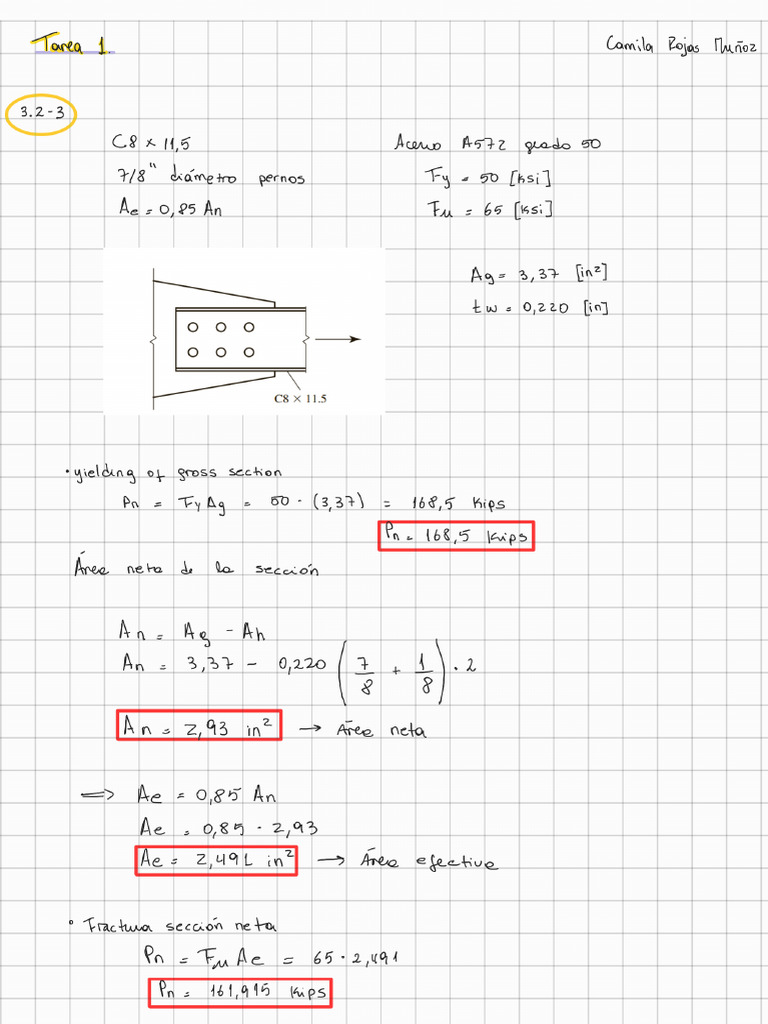 Tarea 1.
Camila Rojas Muñoz
3.2-3
C8 x 11,5
Acero A572 grado 50
7/8" diámetro pernos
Fy = 50 [ksi]
Ae = 0,85 An
Fu = 65 [ksi]
Ag = 3,37 [in²]
tw = 0,220 [in]
C8 × 11.5
• yielding of gross section
Pn = Fy Ag = 50 · (3,37) = 168,5 kips
Pn = 168,5 kips
Área neta de la sección
An = Ag - Ah
An = 3,37 - 0,220 (7/8 + 1/8) · 2
An = 2,93 in² → Área neta
⇒ Ae = 0,85 An
Ae = 0,85 · 2,93
Ae = 2,491 in² → Área efectiva
• Fractura sección neta
Pn = Fu Ae = 65 · 2,491
Pn = 161,915 kips